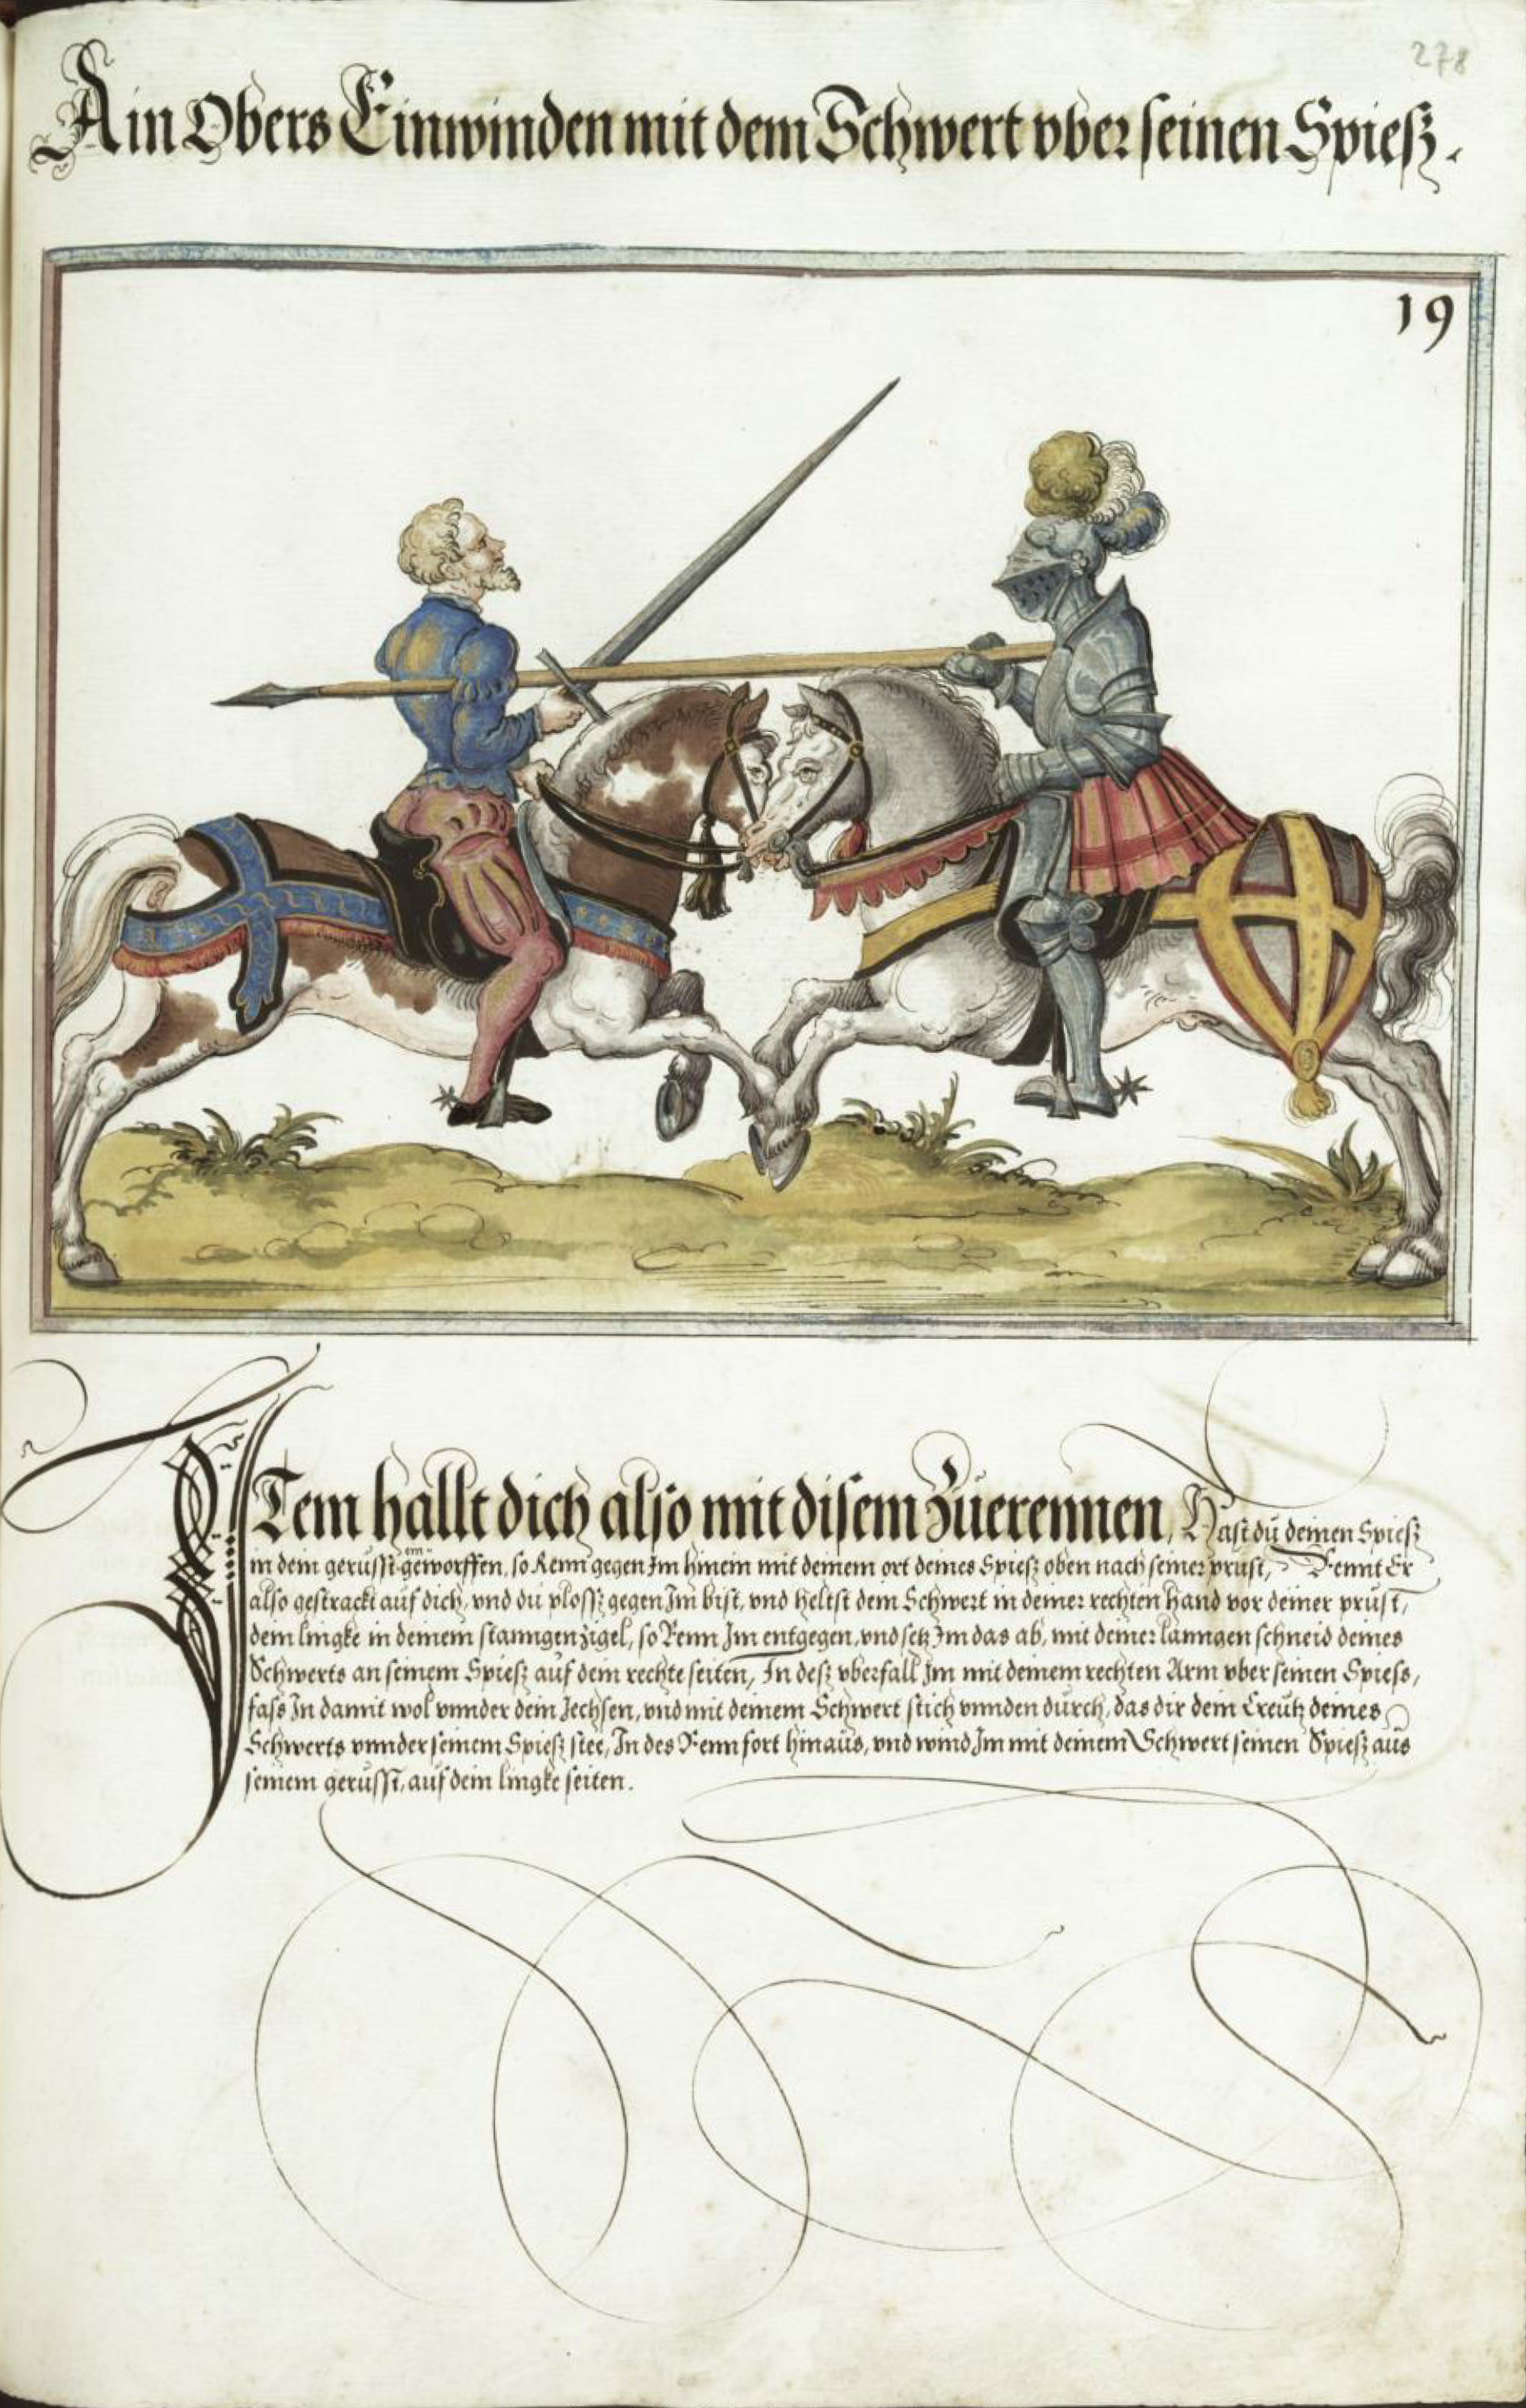 278
Ain Obers Einwinden mit dem Schwert vber seinen Spiesz.
19
ITem hallt dich also mit disem Zuerennen, Hast du deinen Spiesz
in dein gerusst eingeworffen, so Renn gegen Im hinein mit deinem ort deines Spiesz oben nach seiner prust, Rennt Er
also gestrackt auf dich, vnd du plossz gegen Im bist, vnd heltst dein Schwert in deiner rechten hand vor deiner prust,
dein lingke in deinem stanngen zigel, so Renn Im entgegen, vnd setz Im das ab, mit deiner lanngen schneid deines
Schwerts an seinem Spiesz auf dein rechte seiten, In desz vberfall Im mit deinem rechten Arm vber seinen Spiess,
fass In damit wol vnnder dein Jechsen, vnd mit deinem Schwert stich vnnden durch, das dir dein Creutz deines
Schwerts vnnder seinem Spiesz stee, In des Renn fort hinaus, vnd wind Im mit deinem Schwert seinen Spiesz aus
seinem gerusst, auf dein lingke seiten.